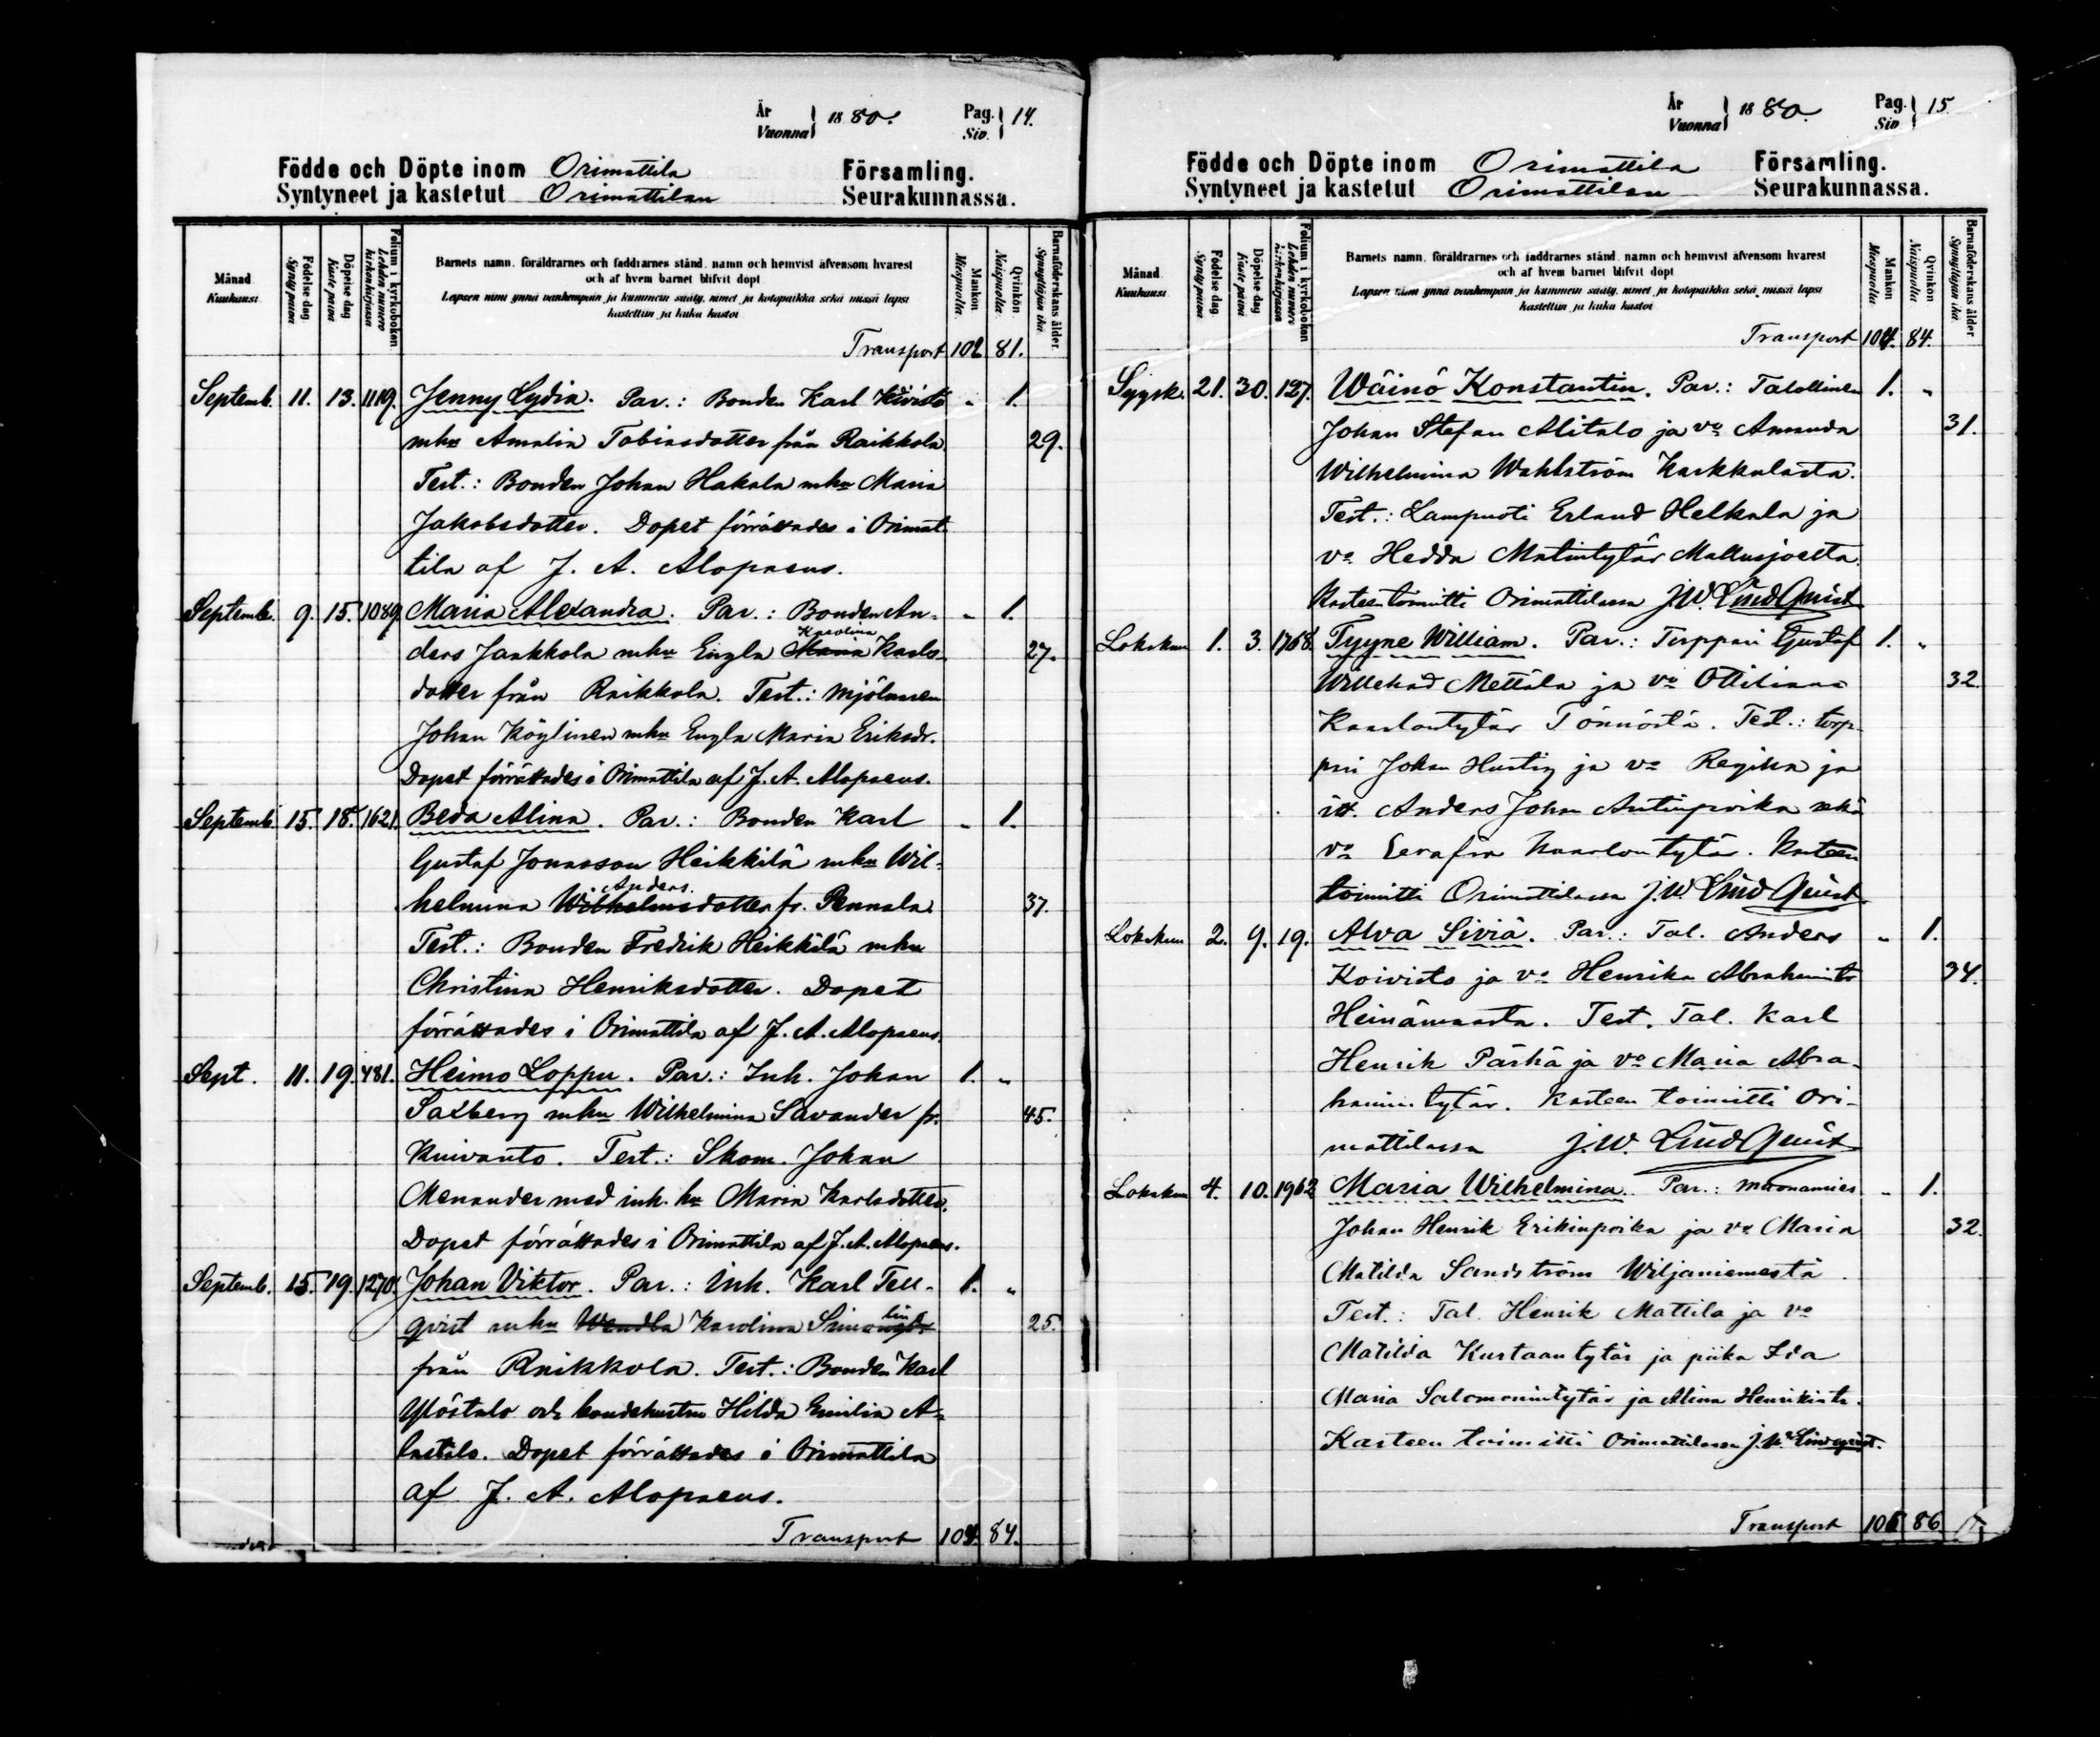 År
Vuonna 1880. Pag.
Siv. 14.
Födde och Döpte inom Orimattila Församling.
Syntyneet ja kastetut Orimattilan Seurakunnassa.
Månad
Kuukausi
Födelse dag
Synty päivä
Döpelse dag
Kaste päivä
Folium i kyrkoboken
Lehden numero kirkonkirjassa
Barnets namn, föräldrarnes och faddrarnes stånd, namn och hemvist äfvensom hvarest
och af hvem barnet blifvit döpt
Lapsen nimi ynnä vanhempain ja kummein sääty, nimet ja kotopaikka sekä missä lapsi
kastettiin ja kuka kastoi
Mankön
Miespuolia.
Qvinkön
Naispuolia.
Barnaföderskans ålder.
Synnyttäjän ikä.
Transport 102 81.
Septemb. 11. 13. 1119. Jenny Lydia. Par.: Bonden Karl Koivisto „ 1.
mhu Amalia Tobiasdotter från Raikkola. 29.
Test.: Bonden Johan Hakala mhu Maria
Jakobsdotter. Dopet förrättades i Orimat-
tila af J. A. Alopaeus.
Septemb. 9. 15. 1089. Maria Alexandra. Par.: Bonden An- „ 1.
Karolina
ders Jaakkola mhu Engla Maria Karls- 27.
dotter från Raikkola. Test.: Mjölnaren
Johan Köylinen mhu Engla Maria Eriksdr.
Dopet förrättades i Orimattila af J. A. Alopaeus.
Septemb. 15. 18. 1621. Beda Alina. Par.: Bonden Karl „ 1.
Gustaf Jonasson Heikkilä mhu Wil-
Anders
helmina Wilhelmsdotter fr. Pennala. 37.
Test.: Bonden Fredrik Heikkilä mhu
Christina Henriksdotter. Dopet
förrättades i Orimattila af J. A. Alopaeus.
Sept. 11. 19. 481. Heimo Loppu. Par.: Inh. Johan 1. „
Saxberg mhu Wilhelmina Savander fr. 45.
Kuivanto. Test.: Skom. Johan
Menander med inh. hu Maria Karlsdotter.
Dopet förrättades i Orimattila af J. A. Alopaeus.
Septemb. 15. 19. 1270. Johan Viktor. Par.: Inh. Karl Tell- 1. „
lin
qvist mhu Wendla Karolina 25.
från Raikkola. Test.: Bonden Karl
Ylöstalo och bondehustru Hilda Emilia A-
lastalo. Dopet förrättades i Orimattila
af J. A. Alopaeus.
Transport 104. 84.
År
Vuonna 1880. Pag.
Siv 15.
Födde och Döpte inom Orimattila Församling.
Syntyneet ja kastetut Orimattilan Seurakunnassa.
Månad
Kuukausi
Födelse dag
Synty päivä
Döpelse dag
Kaste päivä
Folium i kyrkoboken
Lehden numero kirkonkirjassa
Barnets namn, föräldrarnes och faddrarnes stånd, namn och hemvist äfvensom hvarest
och af hvem barnet blifvit döpt
Lapsen nimi ynnä vanhempain ja kummein sääty, nimet ja kotopaikka sekä missä lapsi
kastettiin ja kuka kastoi
Mankön
Miespuolia
Qvinkön
Naispuolia
Barnaföderskans ålder
Synnyttäjän ikä
Transport 104. 84.
Syysk. 21. 30. 127. Wäinö Konstantin. Par.: Talollinen 1. „
Johan Stefan Alitalo ja vo Amanda 31.
Wilhelmina Wahlström Karkkulasta.
Test.: Lampuoti Erland Helkala ja
vo Hedda Matintytär Mallusjoelta.
Kasteen toimitti Orimattilassa J.W. LindQuist
Lokakuu 1. 3. 1768. Tyyne William. Par.: Torppari Gustaf 1. „
Willehad Mettälä ja vo Ottiliana 32.
Kaarlontytär Tönnöstä. Test.: torp-
pari Johan Hustig ja vo Regina ja
itt. Anders Johan Antinpoika sekä
vo Serafia Kaarlontytär. Kasteen
toimitti Orimattilassa J.W. LindQuist
Lokakuu 2. 9. 19. Alva Siviä. Par.: Tal. Anders „ 1.
Koivisto ja vo Henrika Abrahamint. 34.
Heinämaasta. Test. Tal. Karl
Henrik Pärhä ja vo Maria Abra-
hamintytär. Kasteen toimitti Ori-
mattilassa J.W. LindQuist
Lokakuu 4. 10. 1962 Maria Wilhelmina. Par.: Muonamies „ 1.
Johan Henrik Erikinpoika ja vo Maria 32.
Matilda Sandström Wiljaniemestä.
Test.: Tal. Henrik Mattila ja vo
Matilda Kustaantytär ja piika Ida
Maria Salomonintytär ja Alina Henrikint.
Kasteen toimitti Orimattilassa J.W. Lindqvist.
Transport 106 86